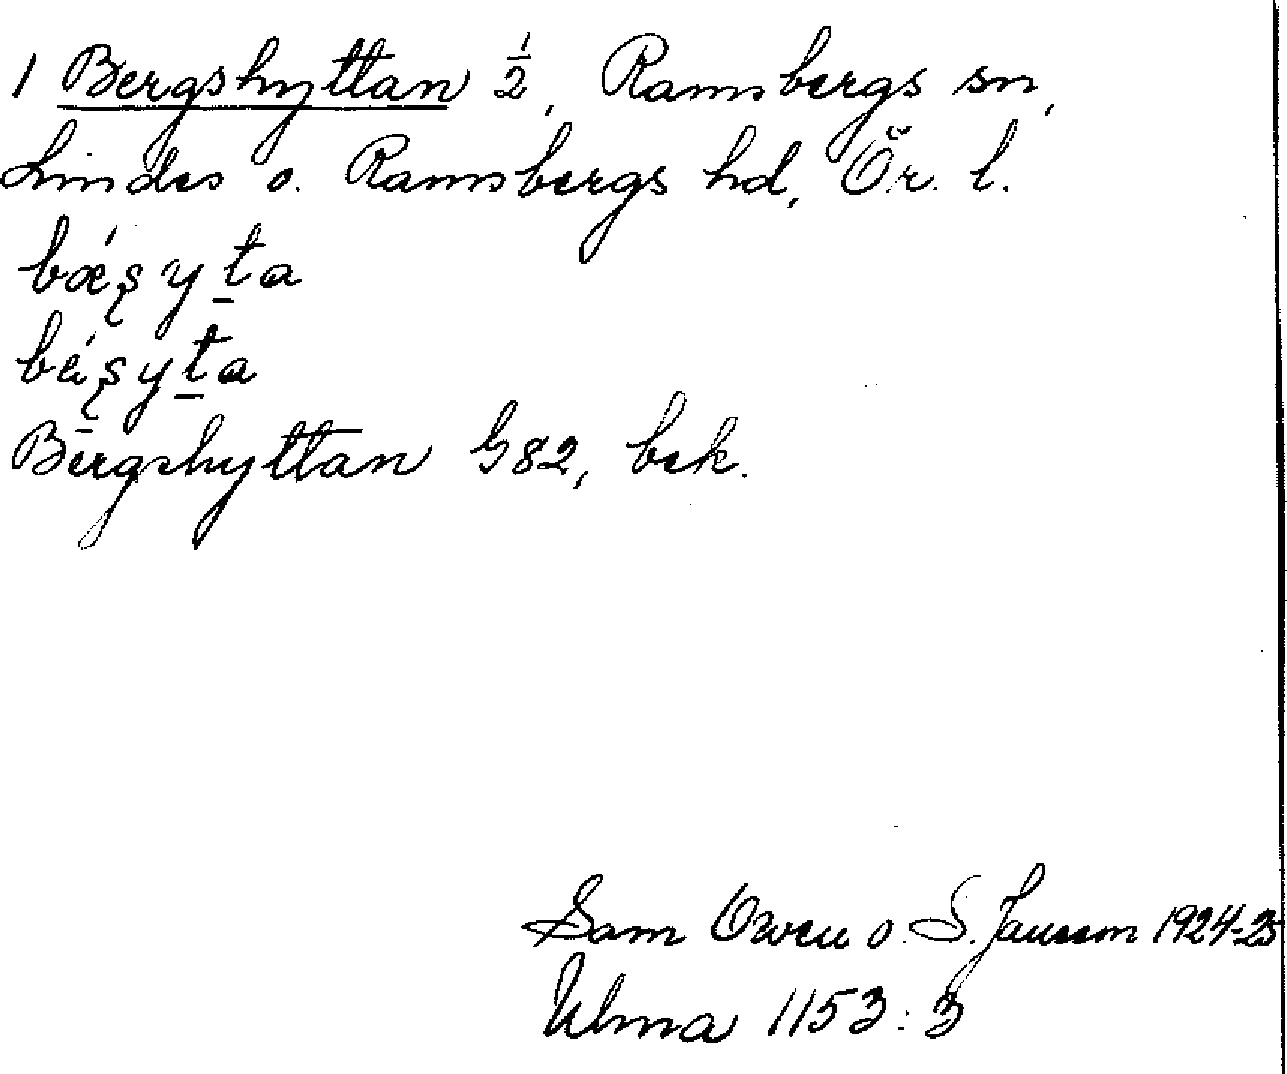 1 Bergshyttan ½, Ramsbergs sn,
Lindes o. Ramsbergs hd, Ör. l.
bǽʂyt̠a
béʂyt̠a
Bergshyttan G82, bek.
Sam Owen o. S. Jansson 1924-25
Ulma 1153:3